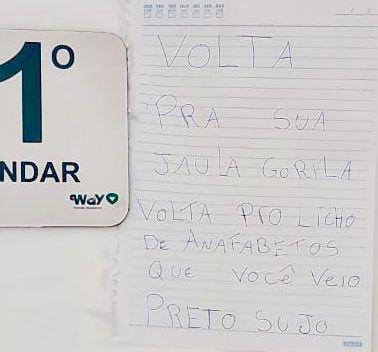 1º
NDAR
Way
VOLTA
PRA SUA
JAULA GORILA
VOLTA PRO LICHO
DE ANAFABETOS
QUE VOCÊ VEIO
PRETO SUJO